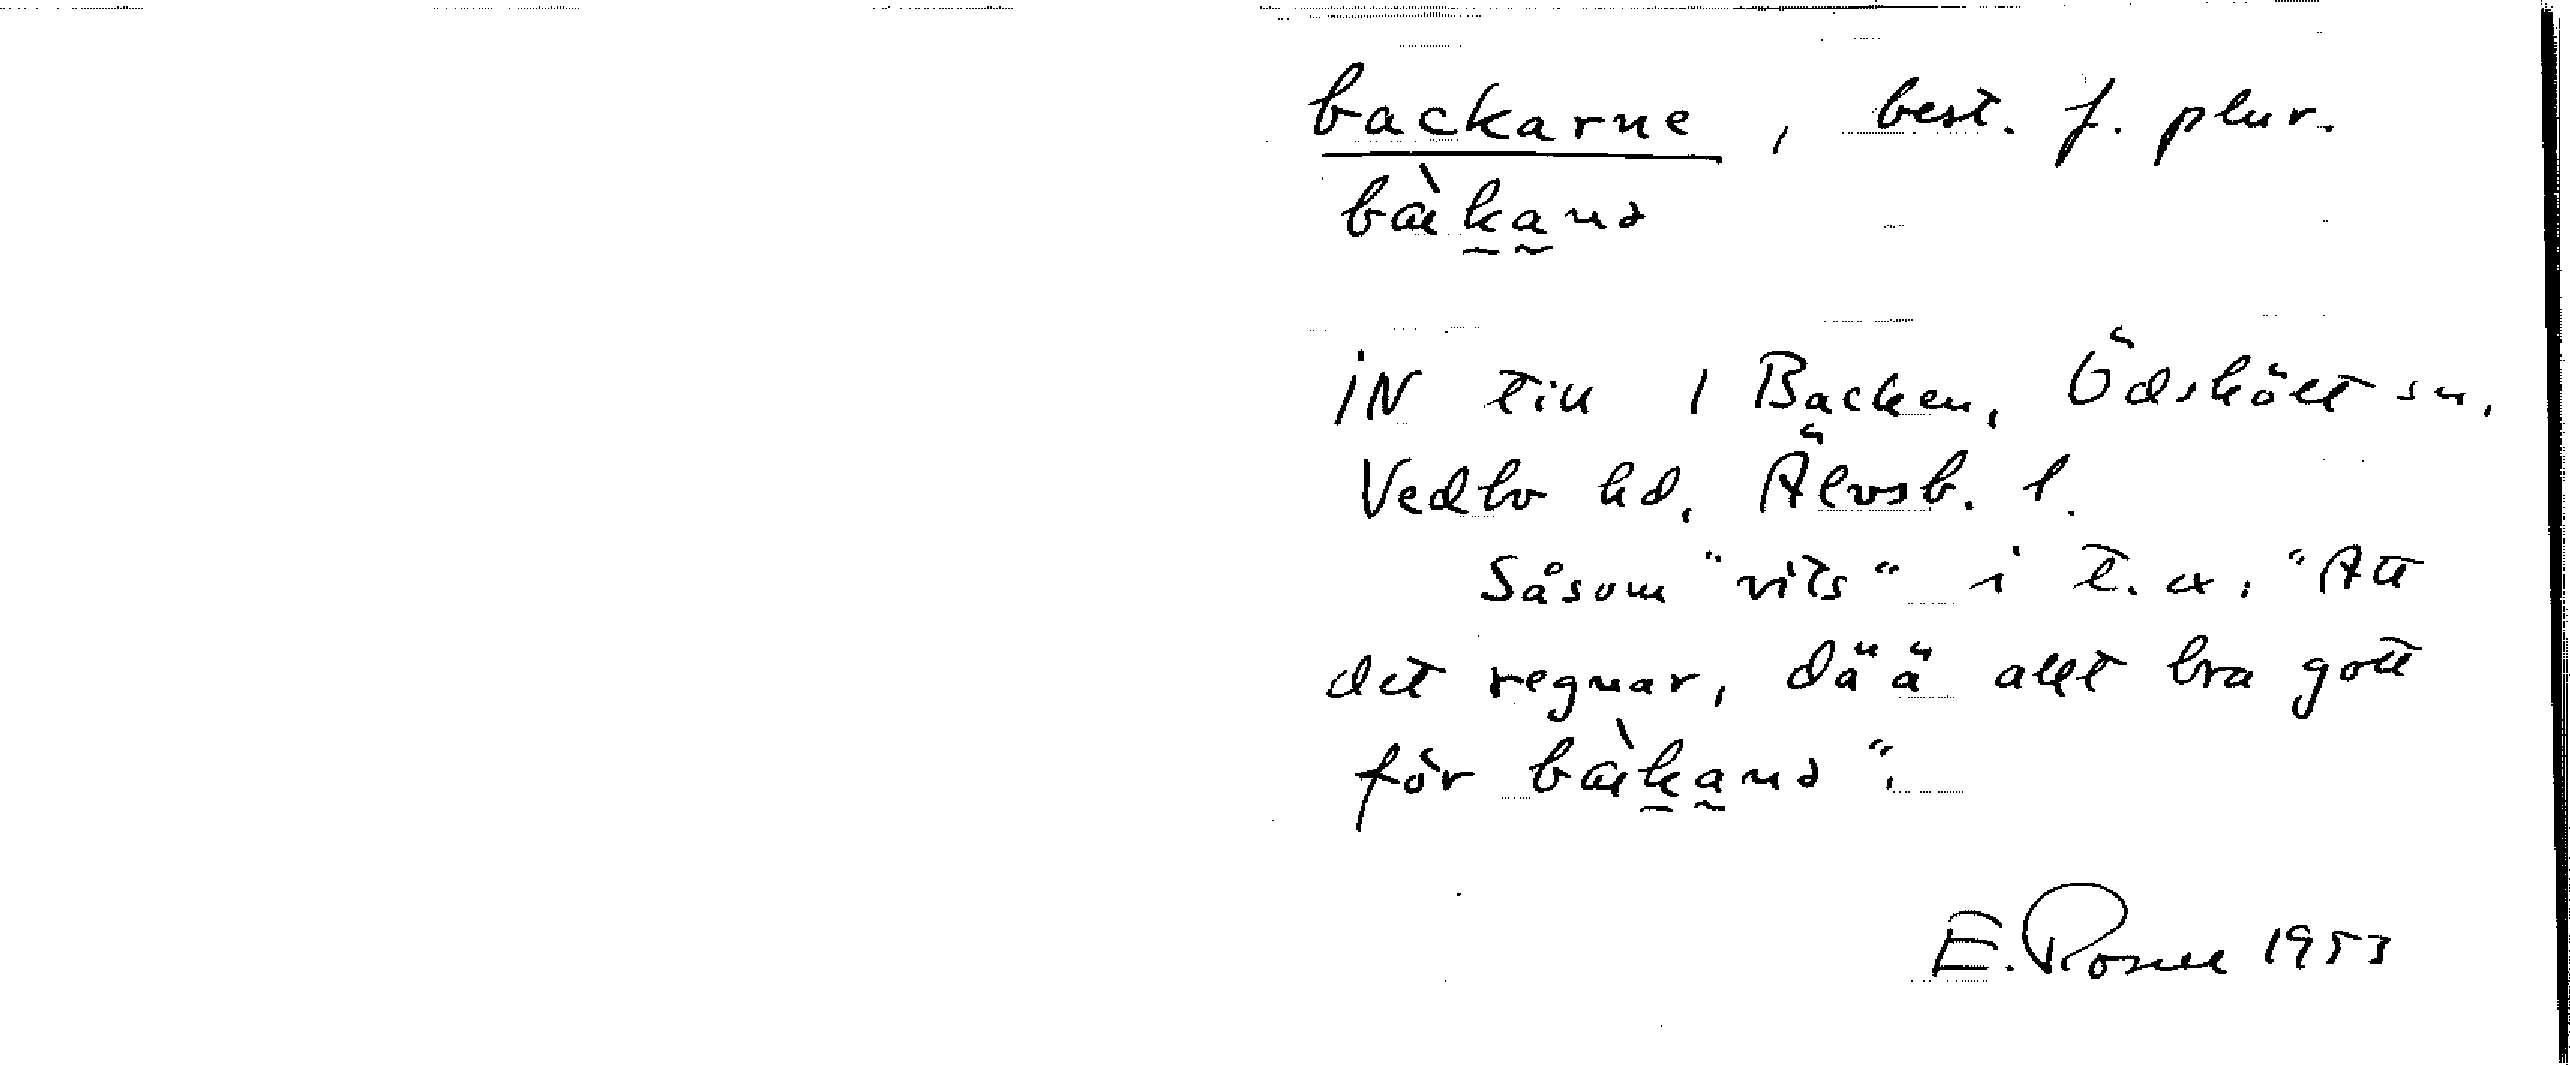 backarne, best. f. plur.
bàkanə
IN till 1 Backen, Ödskölt sn,
Vedbo hd, Älvsb. l.
Såsom "vits" i t. ex. "Att
det regnar, dä ä allt bra gott
för bàkanə".
E. 1953